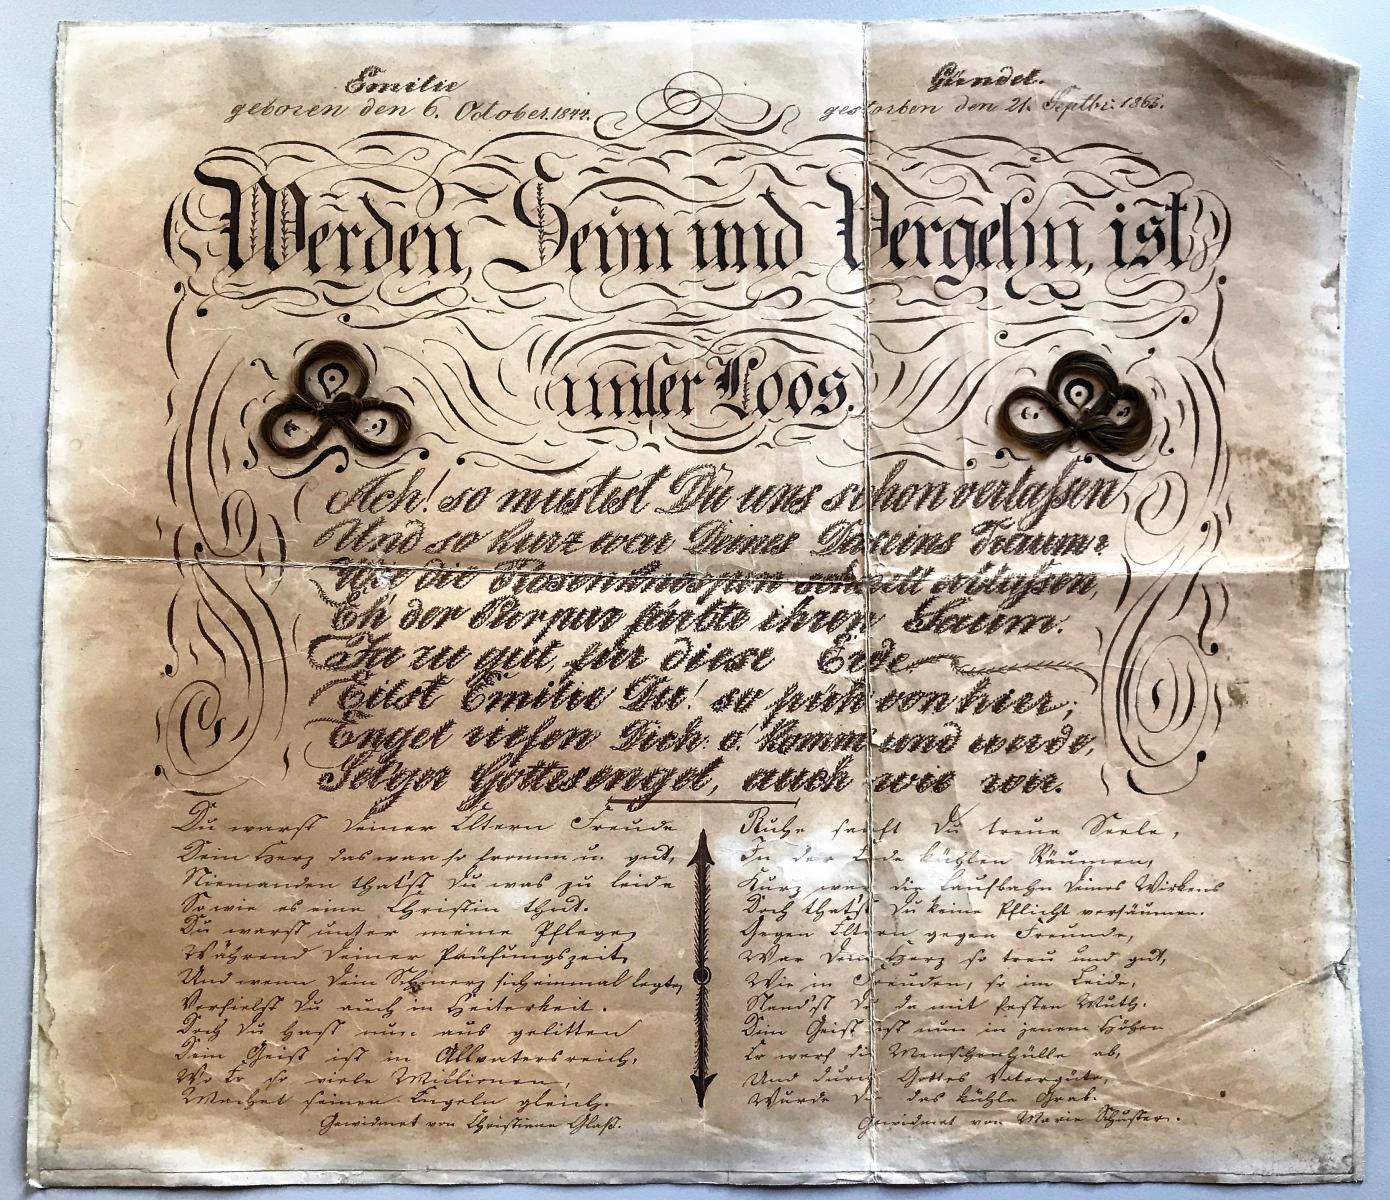 Emilie Gündel.
geboren den 6. October. 1844. gestorben den 21. Septbr. 1863.
Werden, Seyn und Vergehn, ist
unser Loos.
Ach! so mustest Du uns schon verlaßen
Und so kurz war Deines Daseins Traum?
Wie die Rosenknospen schnell erblaßen,
Eh' der Purpur färbte ihren Saum.
Ja zu gut, für diese Erde
Eilst Emilie Du! so früh von hier;
Engel riefen Dich: o! komm und werde,
Sel'ger Gottesengel, auch wie wir.
Du warst Deiner Eltern Freude
Dein Herz das war so fromm u. gut,
Niemanden that'st Du was zu leide
So wie es eine Christin thut.
Du warst unter meine Pflege,
Während Deiner Prüfungszeit,
Und wenn Dein Schmerz sich einmal legte,
Verhielst Du auch in Heiterkeit.
Doch Du hast nun aus gelitten
Dein Geist ist in Allvatersreich,
Wo Er so viele Millionen,
Machet seinen Engeln gleich.
Gewidmet von Christiane Glaß.
Ruhe sanft Du treue Seele,
In der Erde kühlen Räumen,
Kurz war die Laufbahn Deines Wirkens
Doch that'st Du keine Pflicht versäumen.
Gegen Eltern gegen Freunde,
War Dein Herz so treu und gut,
Wie in Freuden, so im Leide,
Stand'st Du da mit festen Muth.
Dein Geist ist nun in jenem Höhen
Er warf die Menschenhülle ab,
Und durch Gottes Vatergüte,
Wurde Dir das kühle Grab.
Gewidmet von Marie Schuster.